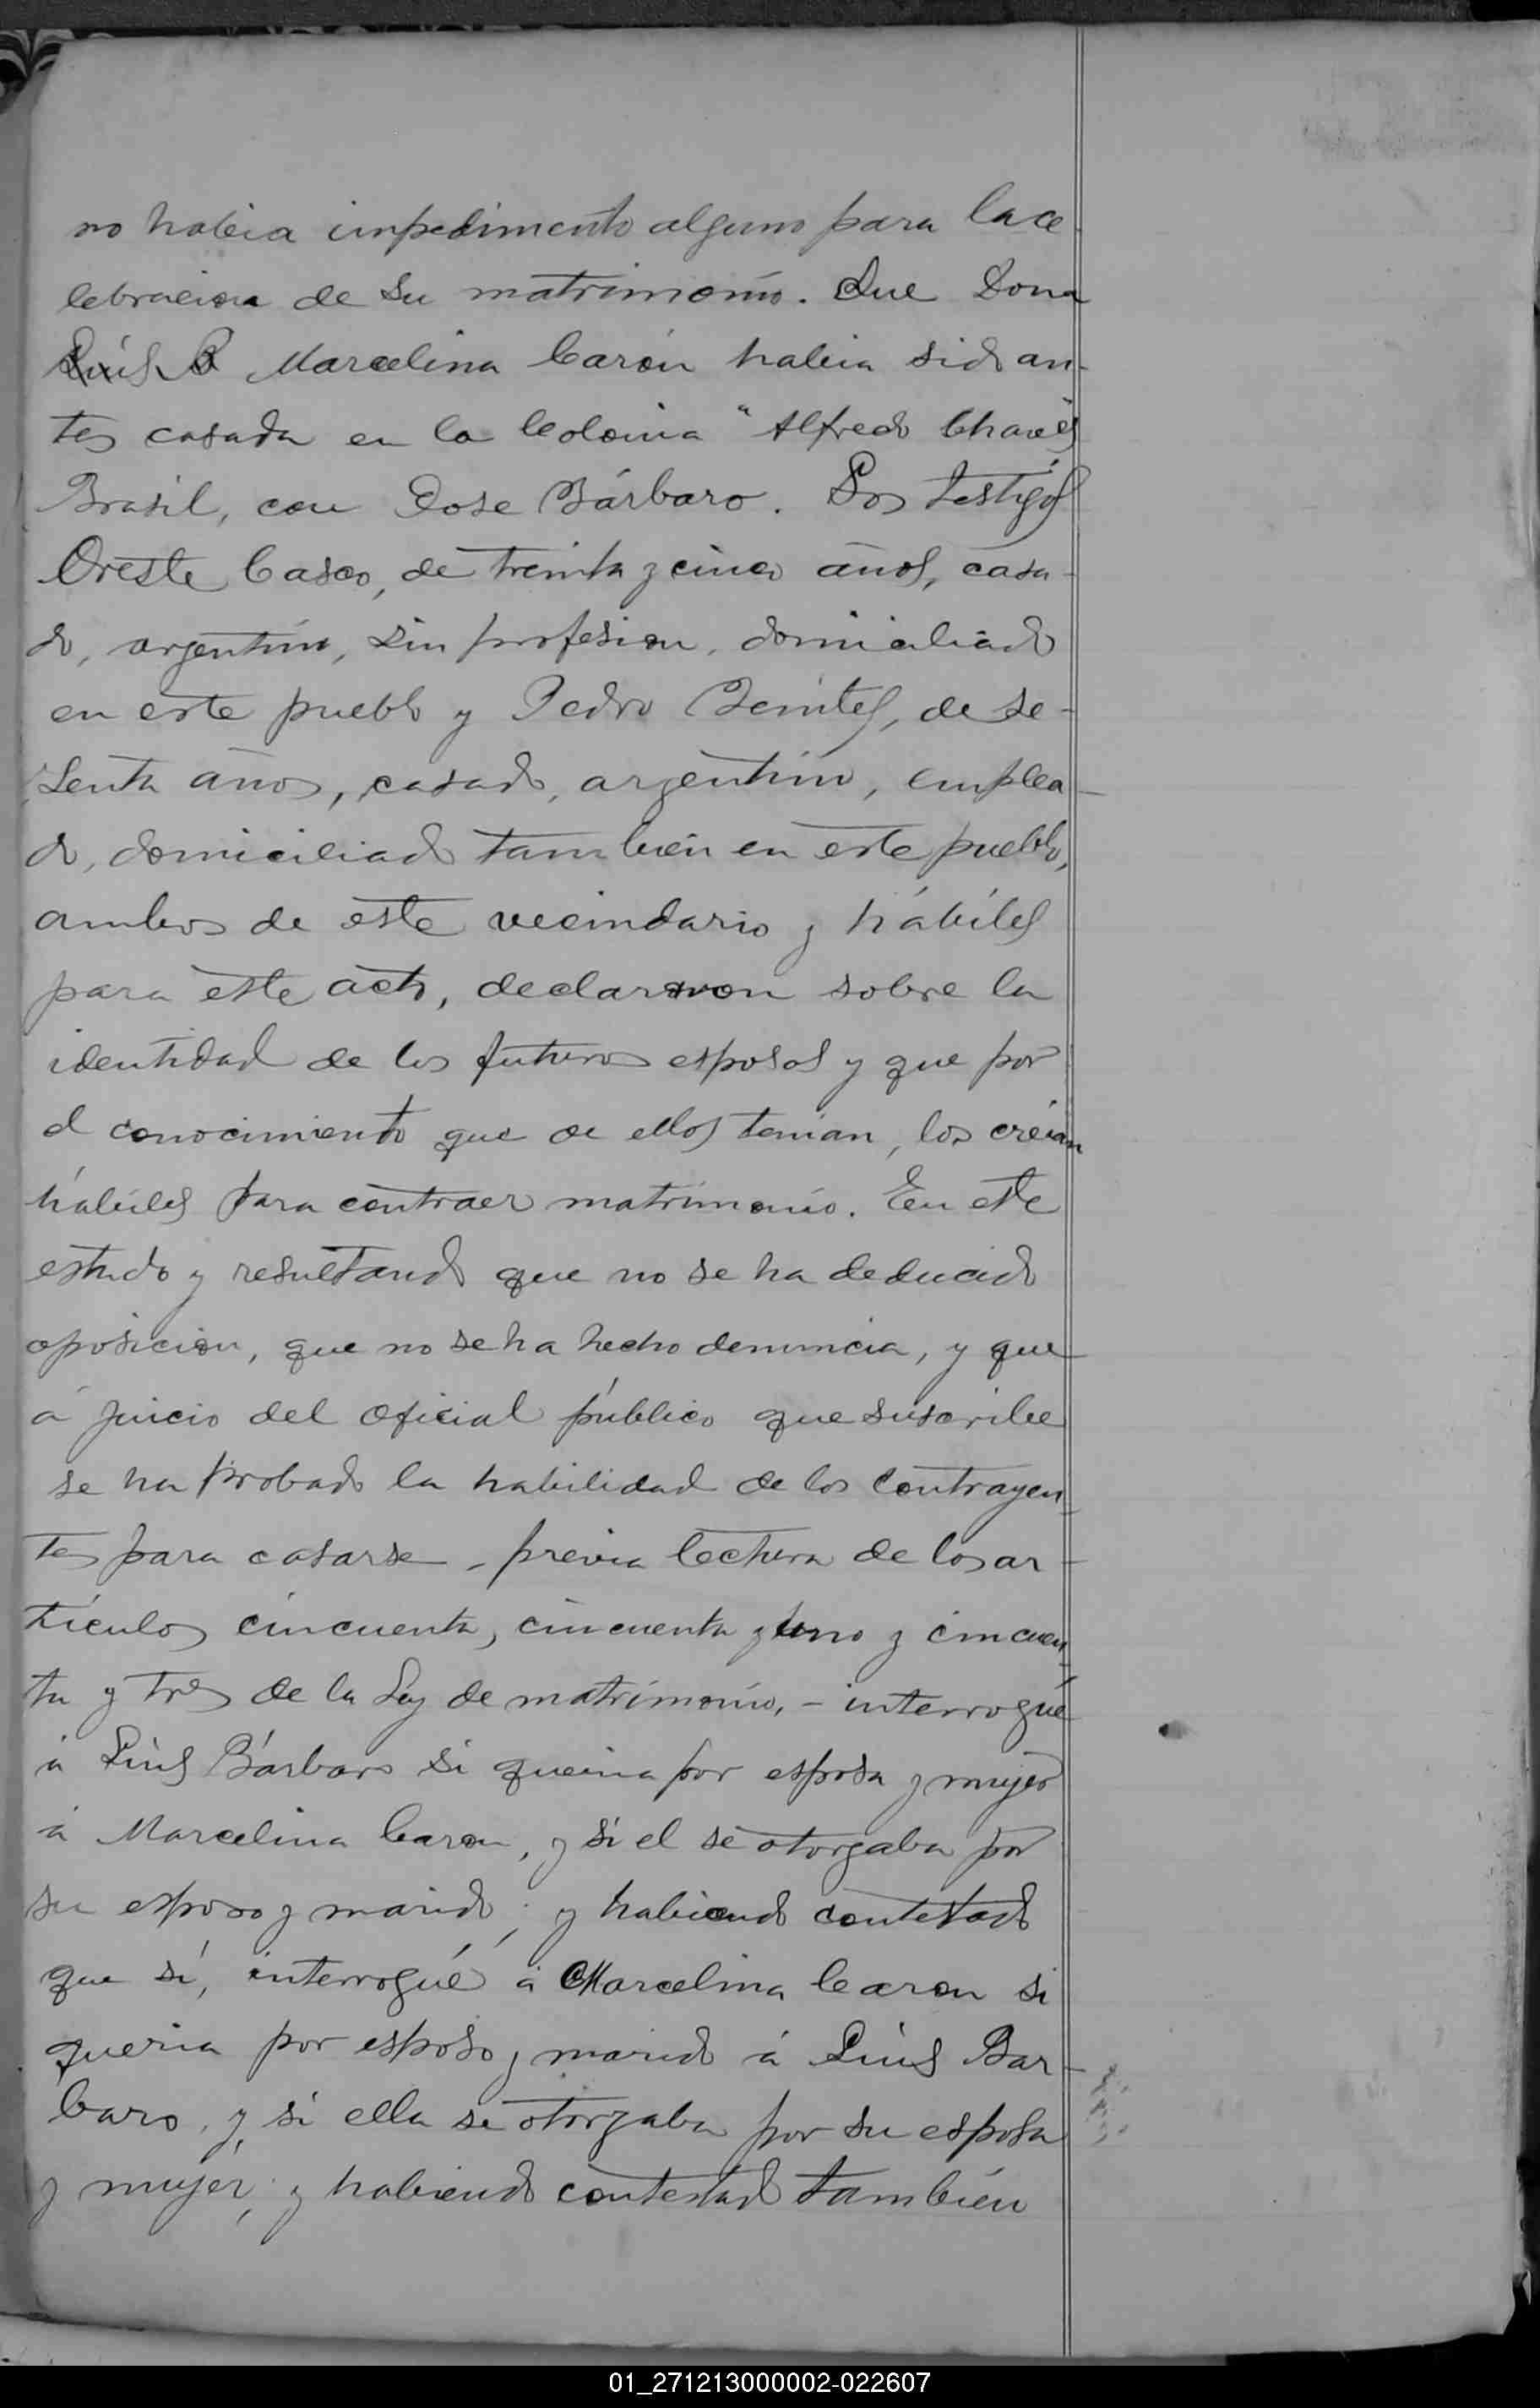 no habia impedimento alguno para la ce
lebracion de su matrimonio. Que Dona
Luis B Marcelina Carón habia sido an-
tes casada en la Colonia "Alfredo Chaves
Brasil, con Jose Bárbaro. Los testigos
Oreste Casco, de treinta y cinco años, casa-
do, argentino, sin profesion, domiciliado
en este pueblo y Pedro Benites, de se-
senta años, casado, argentino, emplea-
do, domiciliado tambien en este pueblo,
ambos de este vecindario y hábiles
para este acto, declararon sobre la
identidad de los futuros esposos y que por
el conocimiento que de ellos tenian, los creian
hábiles para contraer matrimonio. En este
estado y resultando que no se ha deducido
oposicion, que no se ha hecho denuncia, y que
á juicio del oficial público que suscribe
se ha probado la habilidad de los contrayen-
tes para casarse - previa lectura de los ar-
tículos cincuenta, cincuenta y uno y cincuen-
ta y tres de la Ley de matrimonio, - interrogué
á Luis Bárbaro si queria por esposa y mujer
á Marcelina Caron, y si el se otorgaba por
su esposo y marido; y habiendo contestado
que sí, interrogué á Marcelina Caron si
queria por esposo y marido á Luis Bar-
baro, y si ella se otorgaba por su esposa
y mujer, y habiendo contestado también
01_271213000002-022607